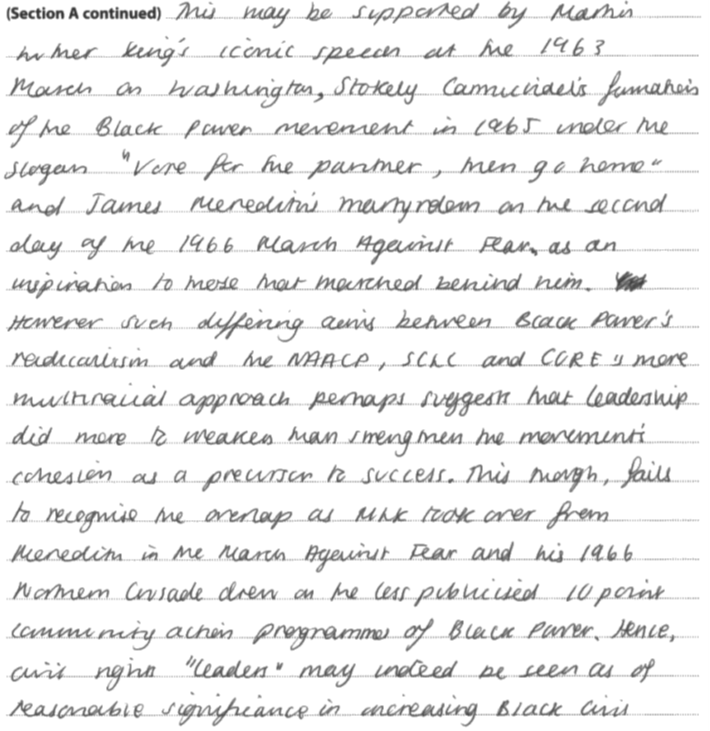 (Section A continued) This may be supported by Martin
luther king's iconic speech at the 1963
March on Washington, Stokely Carmichael's formation
of the Black Power movement in 1965 under the
slogan "Vote for the panther, then go home"
and James Meredith's martyrdom on the second
day of the 1966 March Against Fear, as an
inspiration to those that marched behind him.
However such differing aims between Black Power's
radicalism and the NAACP, SCLC and CORE's more
multiracial approach perhaps suggests that leadership
did more to weaken than strengthen the movement's
cohesion as a precursor to success. This though, fails
to recognise the overlap as MLK took over from
Meredith in the March Against Fear and his 1966
Northern Crusade drew on the less publicised 10 point
community action programmes of Black Power. Hence,
civil rights "leaders" may indeed be seen as of
reasonable significance in increasing Black civil